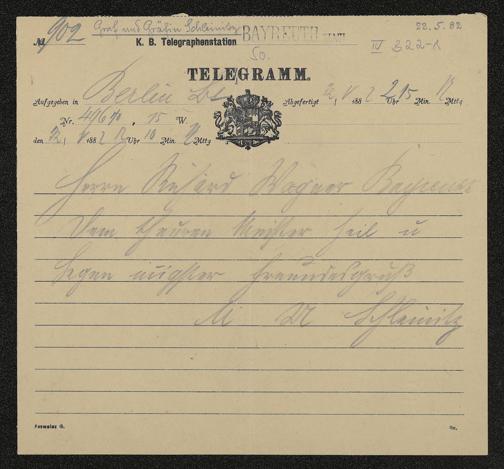 № 902 Graf und Gräfin Schleinitz BAYREUTH 22.5.82
K. B. Telegraphenstation IV 322-1
TELEGRAMM.
Aufgegeben in Berlin Abgefertigt 188 2 Uhr 15 Min. Mttg
Nr. 15 W.
den 22/ V 1882 12 Uhr 10 Min. Mttg
Herrn Richard Wagner Bayreuth
Dem theuren Meister Heil u
Segen innigster Freundesgruß
M Schleinitz